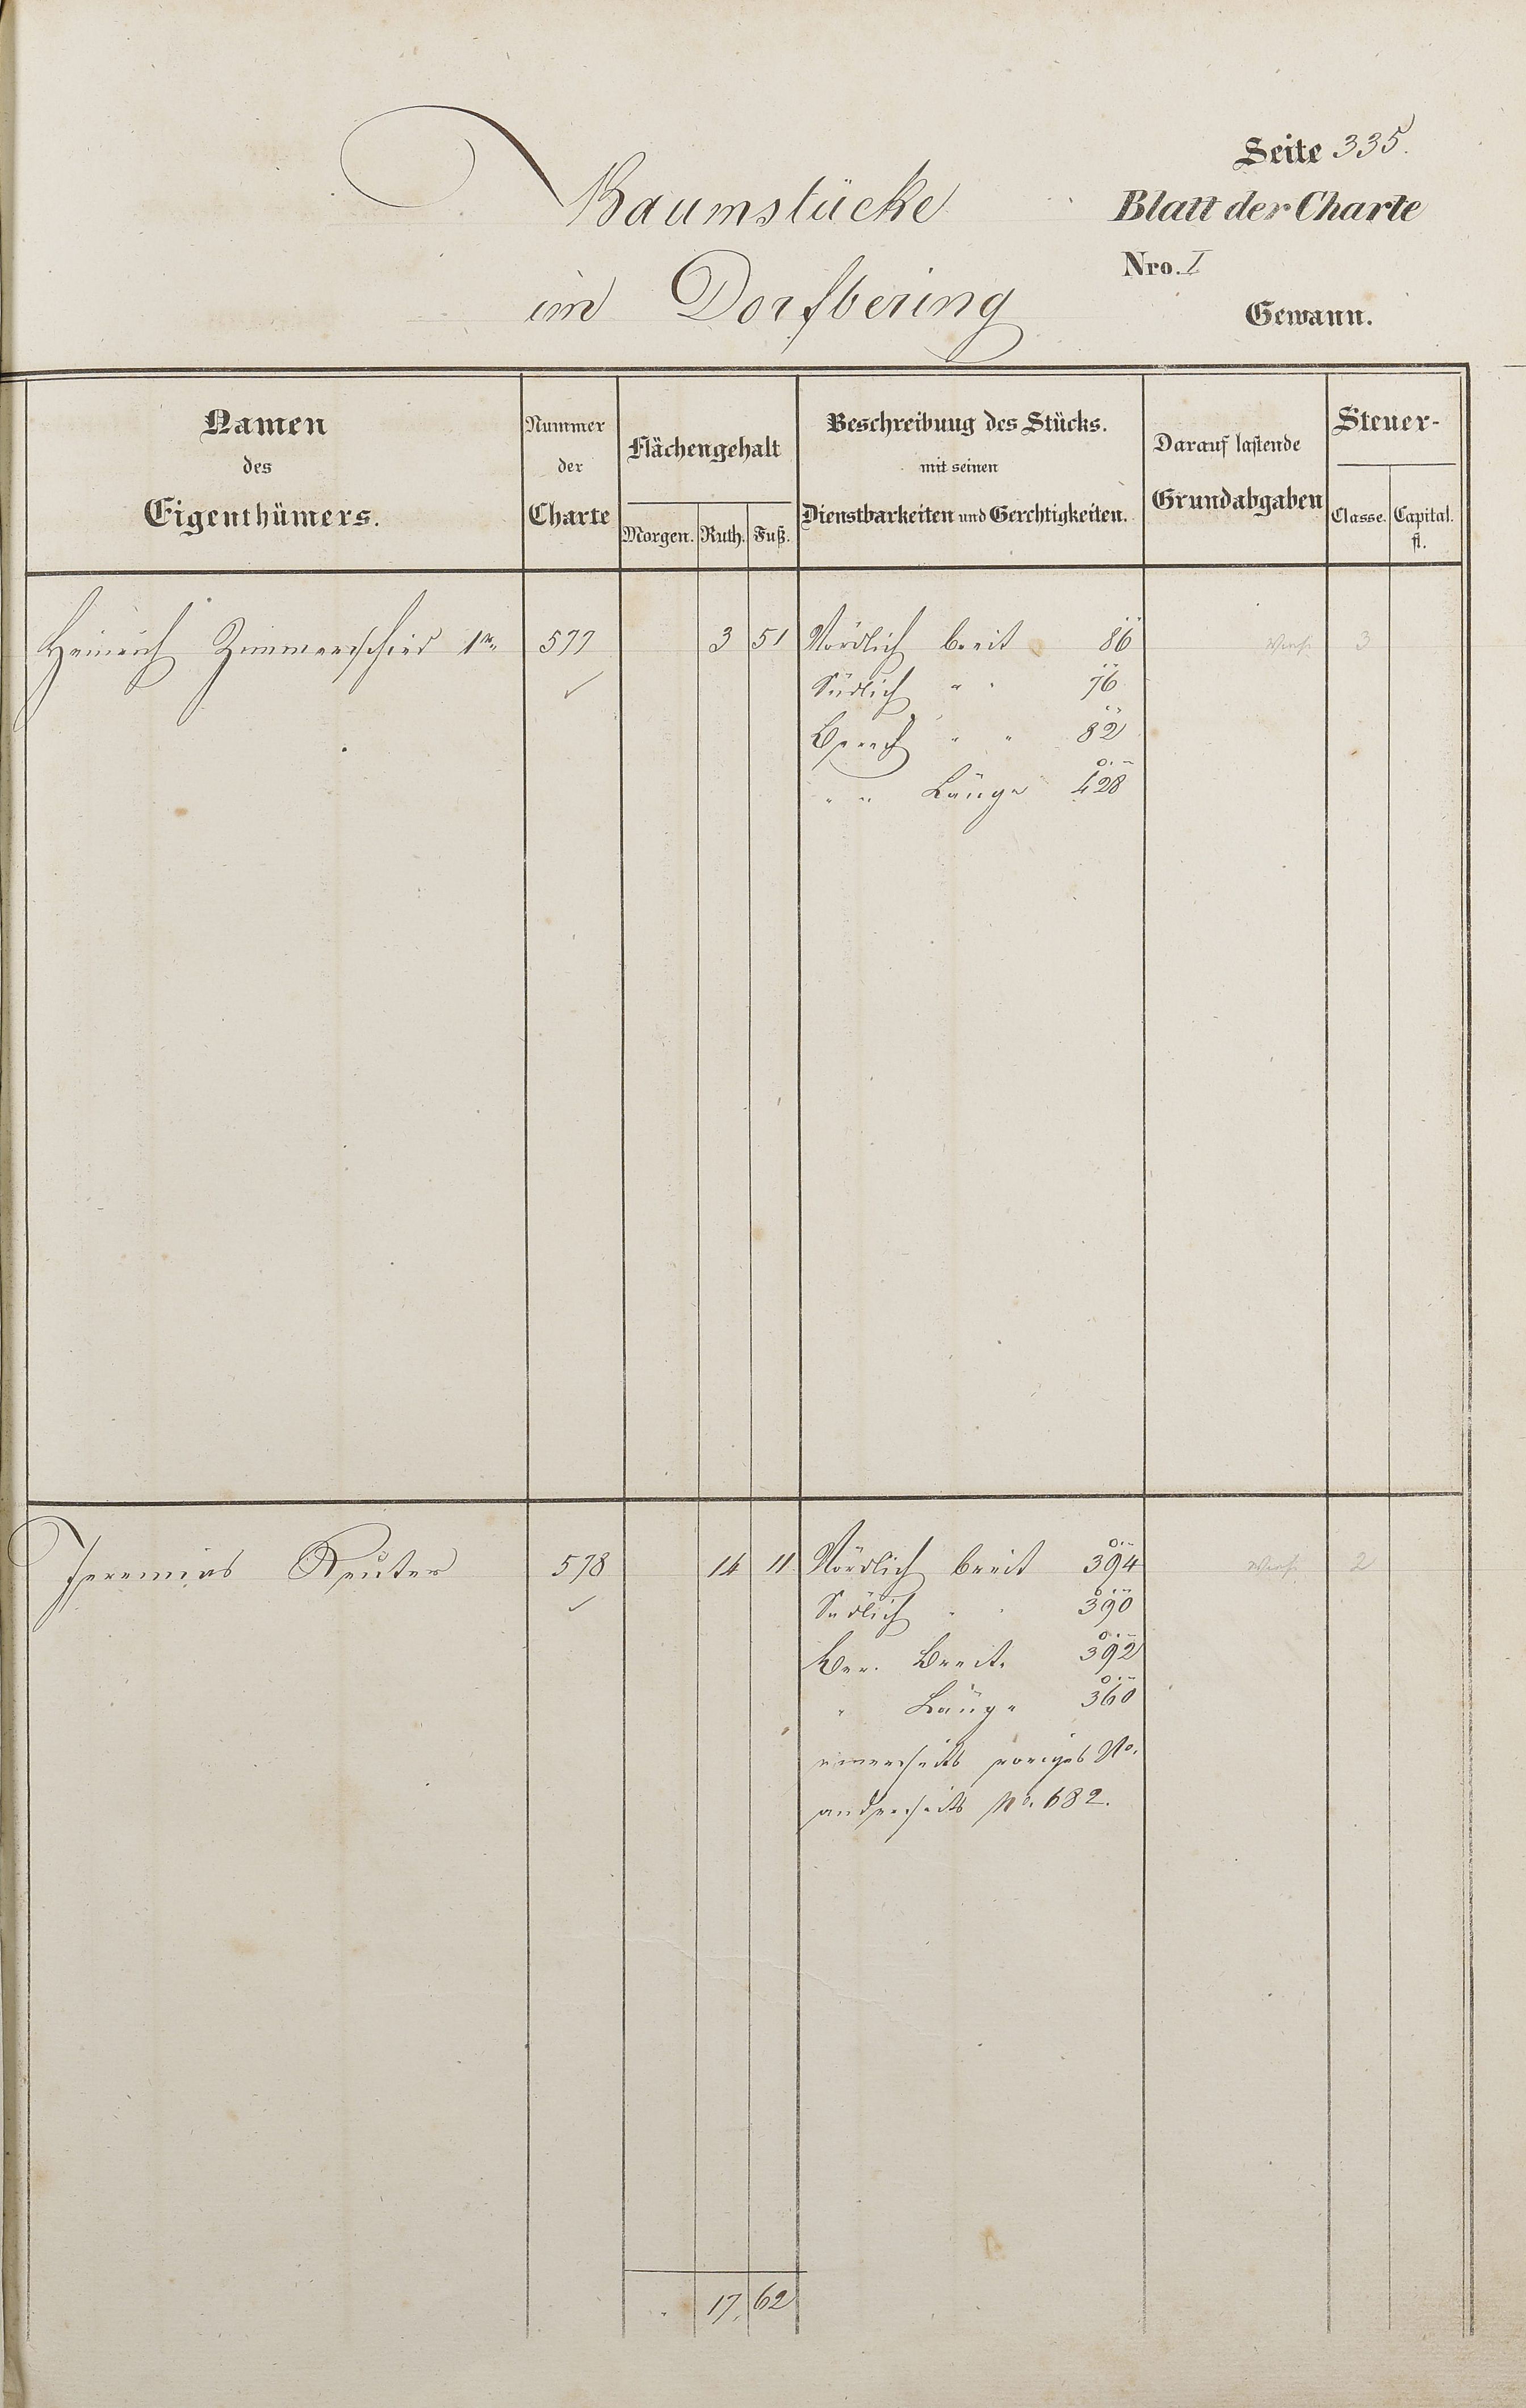 Seite 335.
Baumstücke
Blatt der Charte
Nro. I
im Dorfbering
Gewann.
Namen des Eigenthümers.
Nummer der Charte
Flächengehalt
Morgen. Ruth. Fuß.
Beschreibung des Stücks.
mit seinen
Dienstbarkeiten und Gerechtigkeiten.
Darauf lastende
Grundabgaben
Steuer-
Classe. Capital.
fl.
Heinrich Zimmerschied 1r 577 3 51 Nördlich breit 86 3
Südlich " " 76
Berech " " 82
" " Länge 428
Jeremias Reuter 578 14 11 Nördlich breit 394 2
Südlich " " 390
Ber. Breite 392
" Länge 360
einerseits voriges No.
anderseits No. 682.
17. 62